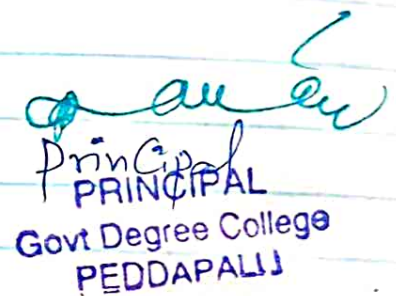 Principal
PRINCIPAL
Govt Degree College
PEDDAPALLI